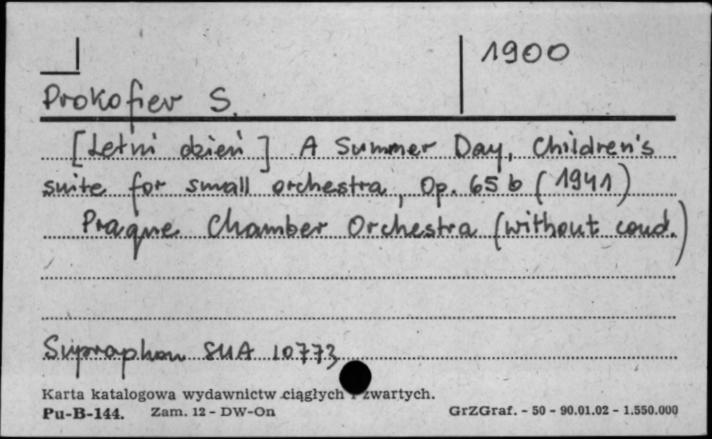 1900
Prokofiev S.
[Letni dzień] A Summer Day, Children's
suite for small orchestra, Op. 65 b (1941)
Prague Chamber Orchestra (without cond.)
Supraphon SUA 10773
Karta katalogowa wydawnictw ciągłych i zwartych.
Pu-B-144. Zam. 12 - DW-On GrZGraf. - 50 - 90.01.02 - 1.550.000